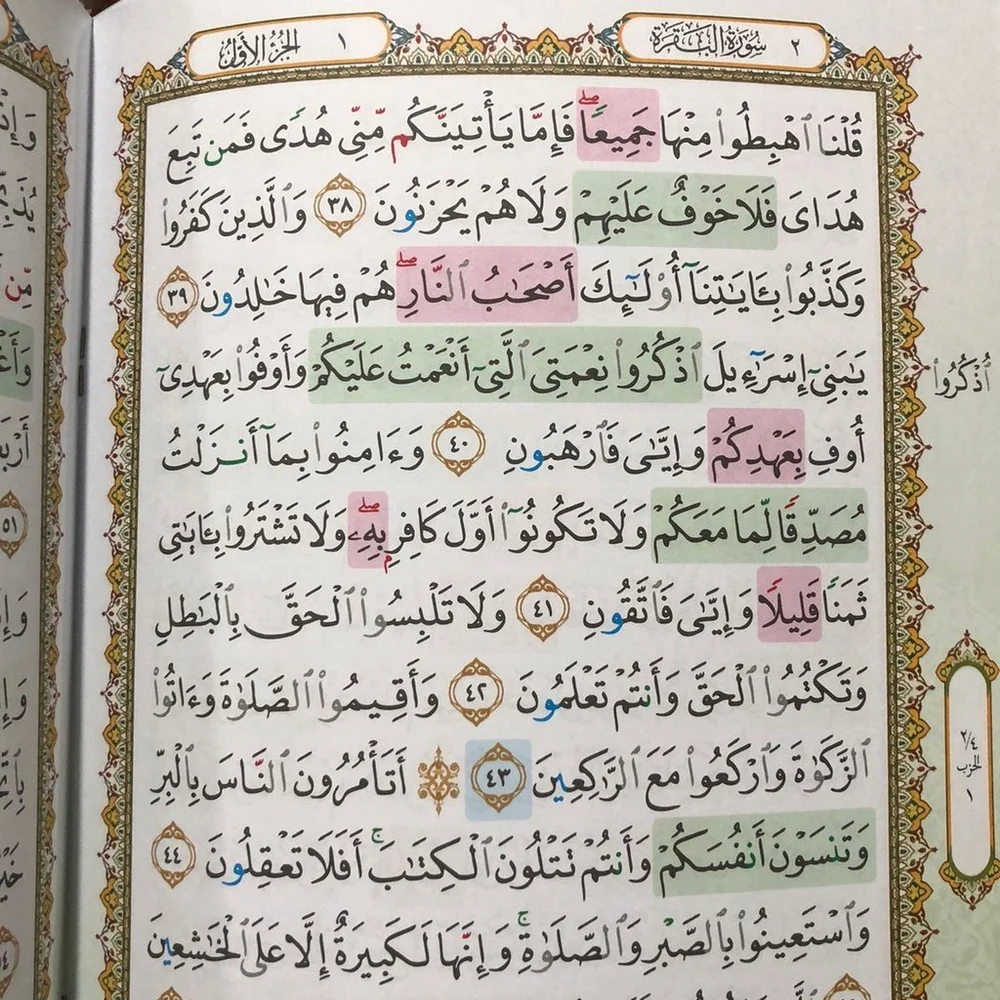 سُورَةُ البَقَرَةِ ٢
١ الجُزْءُ الأَوَّلُ
قُلْنَا ٱهْبِطُوا۟ مِنْهَا جَمِيعًاۖ فَإِمَّا يَأْتِيَنَّكُم مِّنِّى هُدًى فَمَن تَبِعَ
هُدَاىَ فَلَا خَوْفٌ عَلَيْهِمْ وَلَا هُمْ يَحْزَنُونَ ٣٨ وَٱلَّذِينَ كَفَرُوا۟
وَكَذَّبُوا۟ بِـَٔايَـٰتِنَآ أُو۟لَـٰٓئِكَ أَصْحَـٰبُ ٱلنَّارِۖ هُمْ فِيهَا خَـٰلِدُونَ ٣٩
يَـٰبَنِىٓ إِسْرَٰٓءِيلَ ٱذْكُرُوا۟ نِعْمَتِىَ ٱلَّتِىٓ أَنْعَمْتُ عَلَيْكُمْ وَأَوْفُوا۟ بِعَهْدِىٓ
أُذْكُرُوا۟
أُوفِ بِعَهْدِكُمْ وَإِيَّـٰىَ فَٱرْهَبُونِ ٤٠ وَءَامِنُوا۟ بِمَآ أَنزَلْتُ
مُصَدِّقًا لِّمَا مَعَكُمْ وَلَا تَكُونُوٓا۟ أَوَّلَ كَافِرٍۭ بِهِۦۖ وَلَا تَشْتَرُوا۟ بِـَٔايَـٰتِى
ثَمَنًا قَلِيلًا وَإِيَّـٰىَ فَٱتَّقُونِ ٤١ وَلَا تَلْبِسُوا۟ ٱلْحَقَّ بِٱلْبَـٰطِلِ
وَتَكْتُمُوا۟ ٱلْحَقَّ وَأَنتُمْ تَعْلَمُونَ ٤٢ وَأَقِيمُوا۟ ٱلصَّلَوٰةَ وَءَاتُوا۟
ٱلزَّكَوٰةَ وَٱرْكَعُوا۟ مَعَ ٱلرَّٰكِعِينَ ٤٣ أَتَأْمُرُونَ ٱلنَّاسَ بِٱلْبِرِّ
٢/٤
الحزب
١
وَتَنسَوْنَ أَنفُسَكُمْ وَأَنتُمْ تَتْلُونَ ٱلْكِتَـٰبَۚ أَفَلَا تَعْقِلُونَ ٤٤
وَٱسْتَعِينُوا۟ بِٱلصَّبْرِ وَٱلصَّلَوٰةِۚ وَإِنَّهَا لَكَبِيرَةٌ إِلَّا عَلَى ٱلْخَـٰشِعِينَ